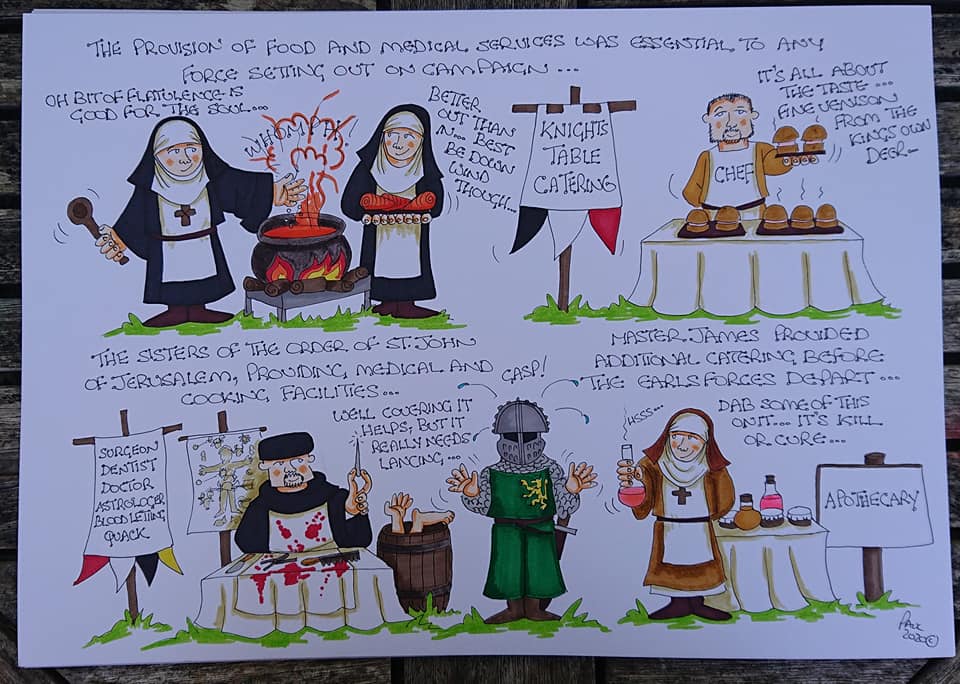 THE PROVISION OF FOOD AND MEDICAL SERVICES WAS ESSENTIAL TO ANY
FORCE SETTING OUT ON CAMPAIGN ...
OH BIT OF FLATULENCE IS
GOOD FOR THE SOUL...
WHOMPA!
BETTER
OUT THAN
IN... BEST
BE DOWN
WIND
THOUGH...
KNIGHTS
TABLE
CATERING
IT'S ALL ABOUT
THE TASTE ...
FINE VENISON
FROM THE
KINGS OWN
DEER...
CHEF
THE SISTERS OF THE ORDER OF ST. JOHN
OF JERUSALEM, PROVIDING MEDICAL AND
COOKING FACILITIES...
MASTER JAMES PROVIDED
ADDITIONAL CATERING BEFORE
THE EARLS FORCES DEPART ...
SURGEON
DENTIST
DOCTOR
ASTROLOGER
BLOOD LETTING
QUACK
WELL COVERING IT
HELPS, BUT IT
REALLY NEEDS
LANCING...
GASP!
HSSS...
DAB SOME OF THIS
ON IT... IT'S KILL
OR CURE...
APOTHECARY
PAUL
2020©